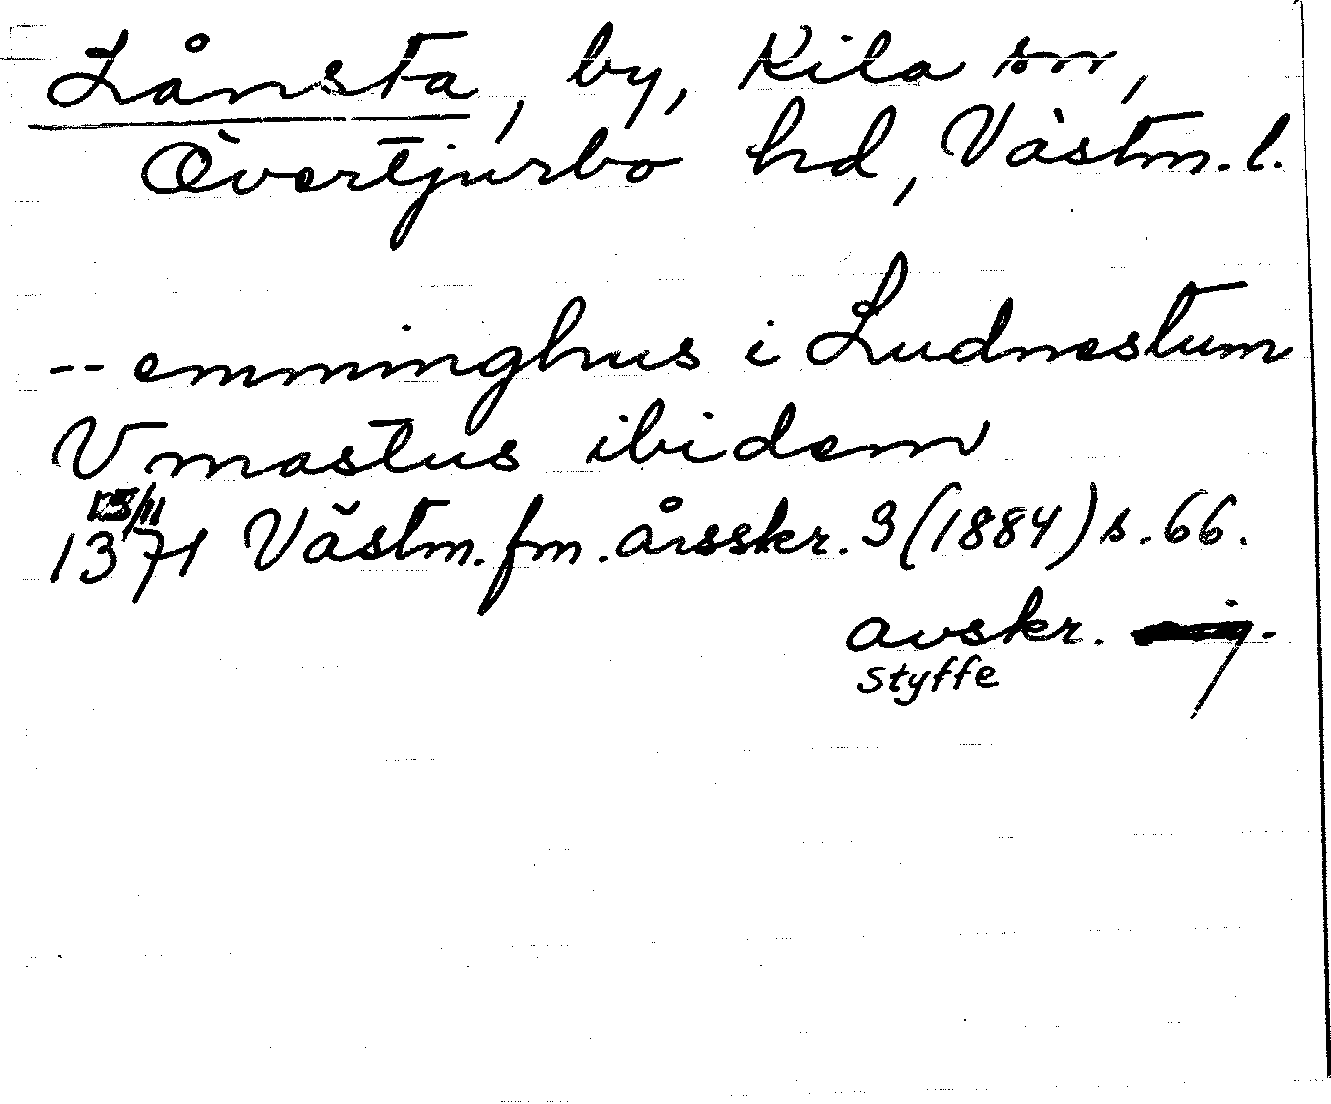 Lånsta, by, Kila sn,
Övertjurbo hd, Västm. l.
-- emminghus i Ludnestum
Vmastus ibidem
15/11
1371 Västm. fm. årsskr. 3 (1884) s. 66.
avskr.
Styffe